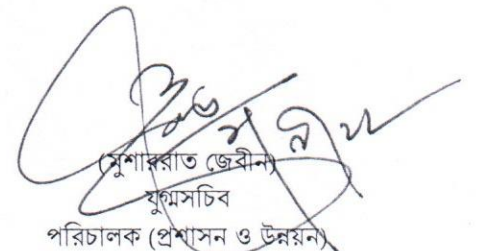 (মুশাররাত জেবীন)
যুগ্মসচিব
পরিচালক (প্রশাসন ও উন্নয়ন)